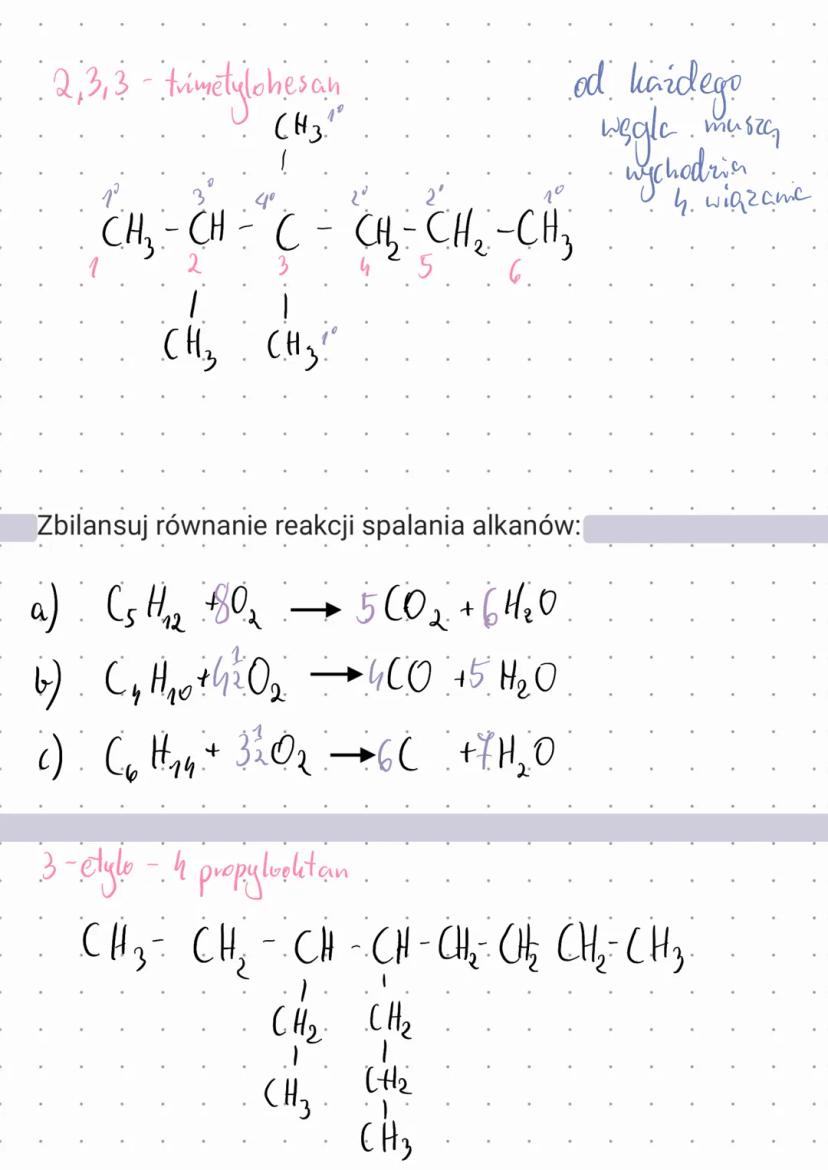 2,3,3 - trimetylohesan
od każdego
węgla muszą
wychodzić
4 wiązania
CH₃ 1°
|
1° 3° 4° 2° 2° 1°
CH₃ - CH - C - CH₂ - CH₂ - CH₃
1 2 3 4 5 6
| |
CH₃ CH₃ 1°
Zbilansuj równanie reakcji spalania alkanów:
a) C₅H₁₂ + 8O₂ → 5CO₂ + 6H₂O
b) C₄H₁₀ + 4½O₂ → 4CO + 5H₂O
c) C₆H₁₄ + 3½O₂ → 6C + 7H₂O
3-etylo - 4 propylooktan
CH₃ - CH₂ - CH - CH - CH₂ - CH₂ CH₂ - CH₃
| |
CH₂ CH₂
| |
CH₃ CH₂
|
CH₃